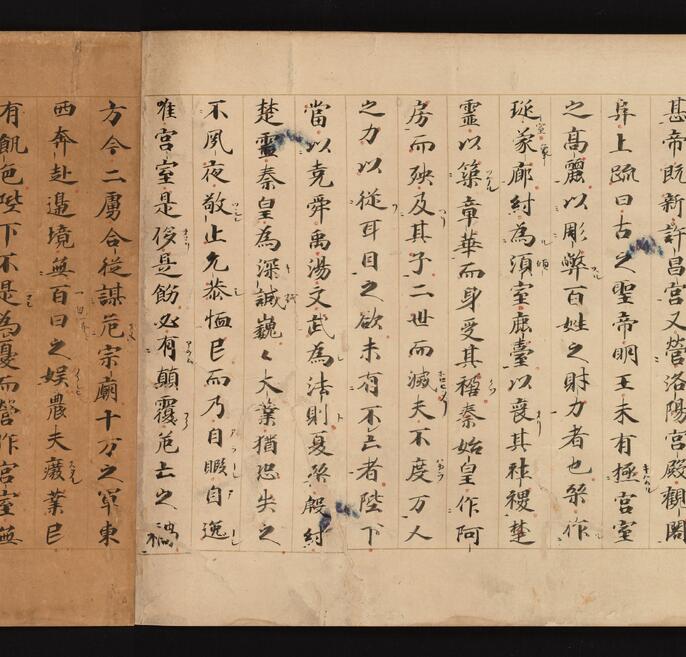 甚帝既新許昌宮又營洛陽宮殿觀閣
阜上疏曰古之聖帝明王未有極宮室
之高麗以彫弊百姓之財力者也桀作
琁蒙廊紂為須室鹿臺以喪其社稷楚
靈以築章華而身受其禍秦始皇作阿
房而殃及其子二世而滅夫不度万人
之力以從耳目之欲未有不亡者陛下
當以堯舜禹湯文武為法則夏桀殷紂
楚靈秦皇為深誡巍〻大業猶恐失之
不夙夜敬止允恭恤民而乃自暇自逸
唯宮室是侈是飭必有顛覆危亡之禍
方今二虜合從謀危宗廟十万之軍東
西奔赴邊境無百日之娛農夫廢業民
有飢色陛下不是為憂而營作宮室無